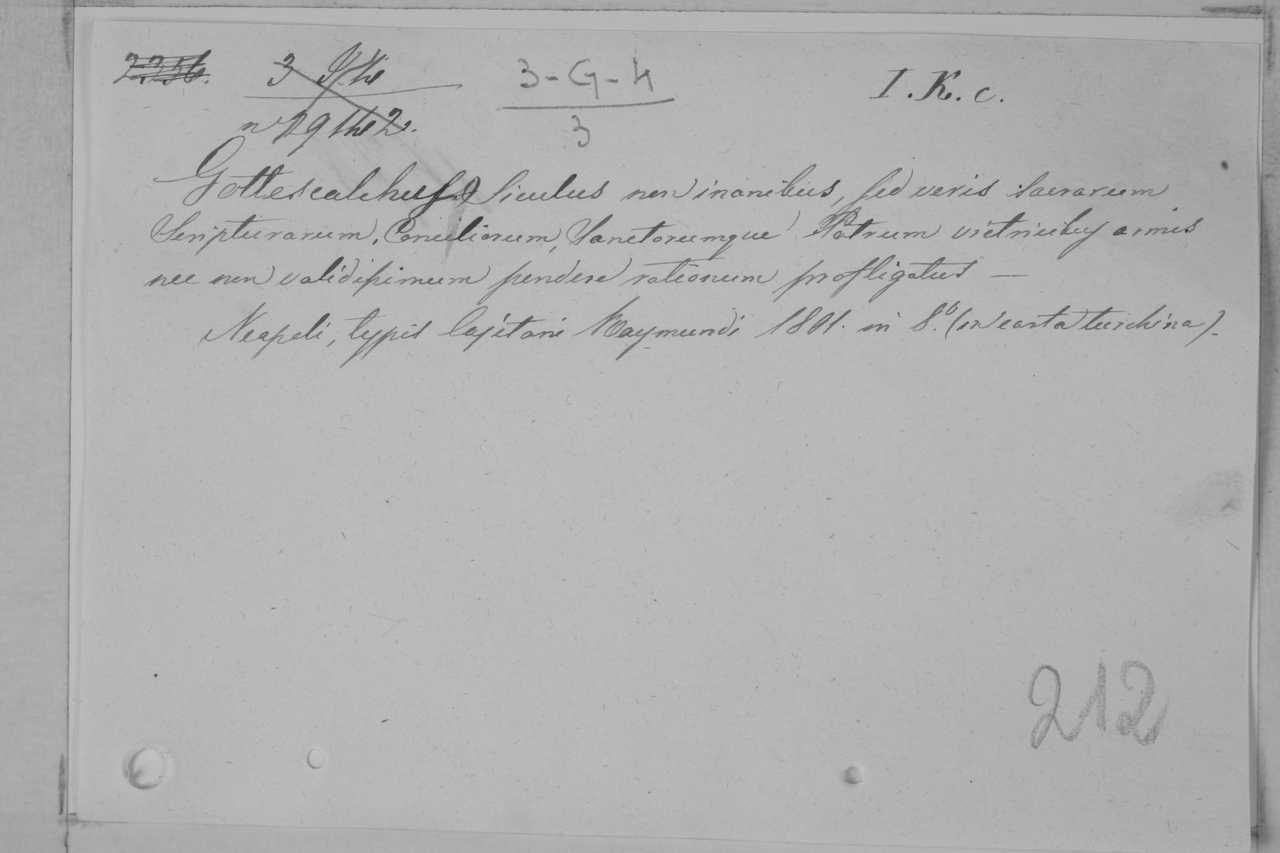 2356. 3 3-G-4 I. K. c.
n 29 2. 3
Gottescalchus Siculus non inanibus, sed veris sacrarum
Scripturarum, Conciliorum, Sanctorumque Patrum victricibus armis
nec non validissimum pondere rationum profligatus —
Neapoli, typis Cajetani Raymundi 1801. in 8.º (in carta turchina).
212